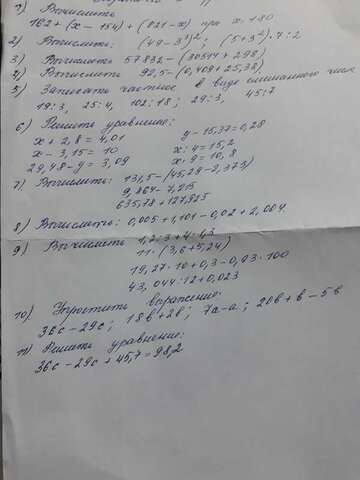 1) Вычислить
162 + (x - 154) + (821 - x) при x = 180
2) Вычислить: (49 - 3³)²; (5 + 3⁴) · 7 : 2
3) Вычислить 57832 - (30517 + 298)
4) Вычислить 92,5 - (0,408 + 25,38)
5) Записать частное в виде смешанного числа
19 : 3, 25 : 4, 102 : 18; 29 : 3, 45 : 7
6) Решить уравнение:
x + 2,8 = 4,01 y - 15,37 = 0,28
x - 3,15 = 10 x : 4 = 15,2
29,48 - y = 3,09 x : 9 = 10,8
7) Вычислить: 131,5 - (45,29 - 2,373)
9,864 - 7,915
635,78 + 127,925
8) Вычислить: 0,005 + 1,101 - 0,02 + 2,004
9) Вычислить 1,2 : 3 + 4 : 1,3
11 · (3,6 + 5,24)
19,27 · 10 + 0,3 - 0,03 · 100
43,044 : 12 + 0,023
10) Упростить выражение:
36c - 29c; 18b + 2b; 7a - a; 20b + b - 5b
11) Решить уравнение:
36c - 29c + 45,7 = 98,2